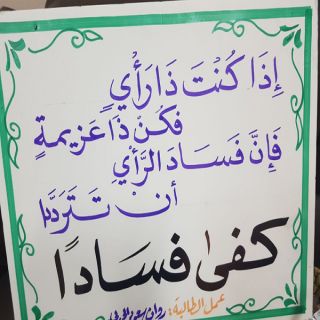 إِذَا كُنْتَ ذَا رَأْيٍ
فَكُنْ ذَا عَزِيمةٍ
فَإِنَّ فَسَادَ الرَّأْيِ
أَنْ تَتَرَدَّدا
كفىٰ فسادًا
عمل الطالبة: روان سعود